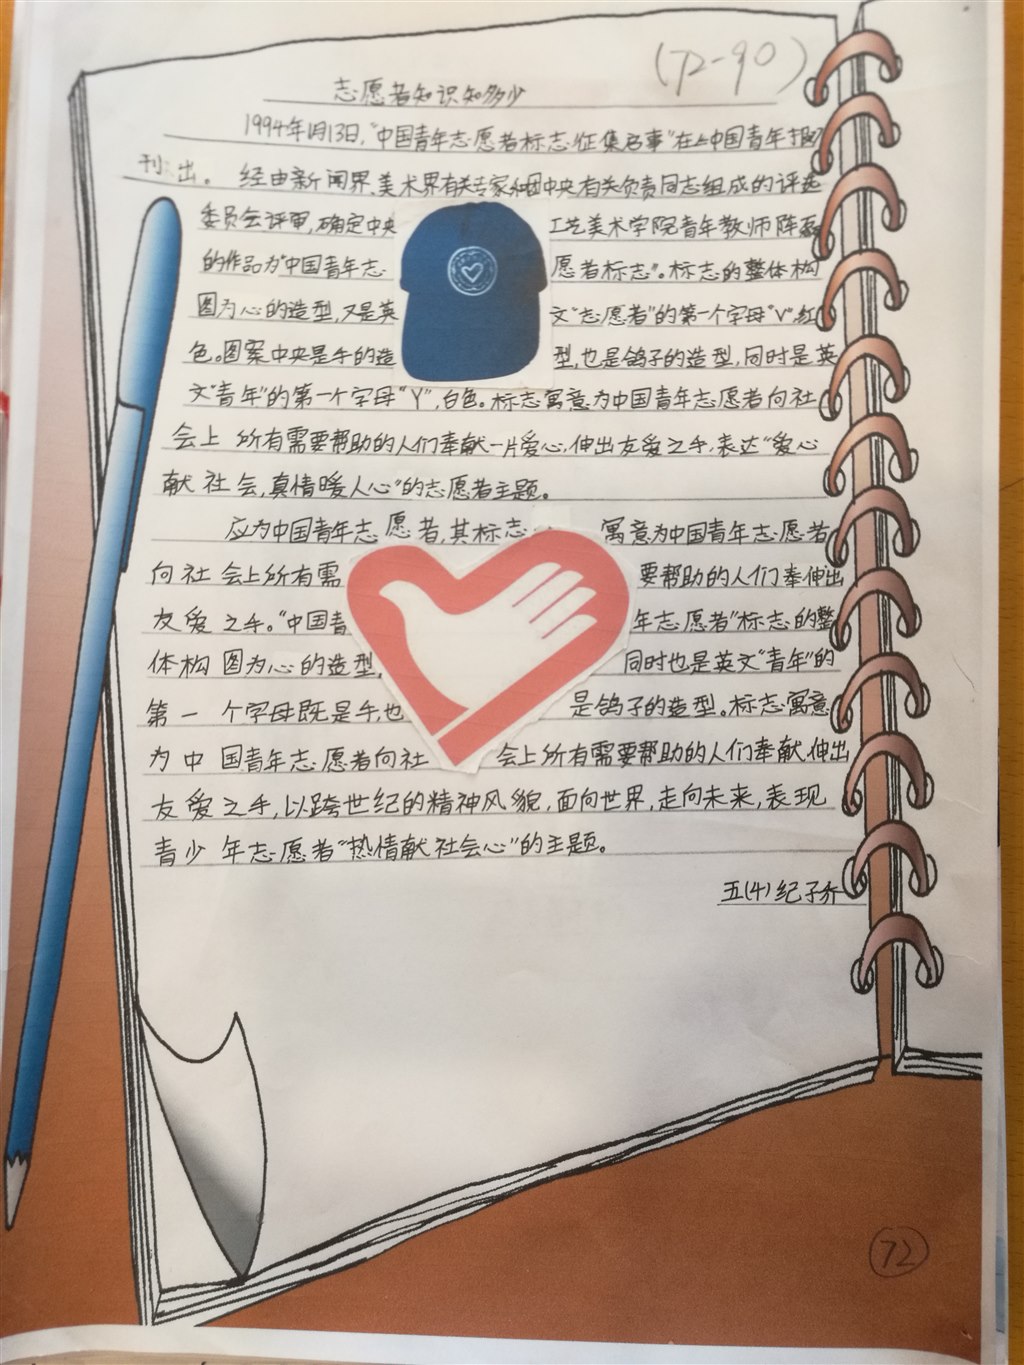 (72-90)
志愿者知识知多少
1994年1月13日,"中国青年志愿者标志征集启事"在《中国青年报》
刊出。经由新闻界、美术界有关专家和团中央有关负责同志组成的评选
委员会评审,确定中央工艺美术学院青年教师陈磊
的作品为"中国青年志愿者标志"。标志的整体构
图为心的造型,又是英文"志愿者"的第一个字母"V",红
色。图案中央是手的造型,也是鸽子的造型,同时是英
文"青年"的第一个字母"Y",白色。标志寓意为中国青年志愿者向社
会上所有需要帮助的人们奉献一片爱心,伸出友爱之手,表达"爱心
献社会,真情暖人心"的志愿者主题。
应为中国青年志愿者,其标志寓意为中国青年志愿者
向社会上所有需要帮助的人们奉伸出
友爱之手。"中国青年志愿者"标志的整
体构图为心的造型,同时也是英文"青年"的
第一个字母既是手,也是鸽子的造型。标志寓意
为中国青年志愿者向社会上所有需要帮助的人们奉献,伸出
友爱之手,以跨世纪的精神风貌,面向世界,走向未来,表现
青少年志愿者"热情献社会心"的主题。
五(4)纪子乔
72